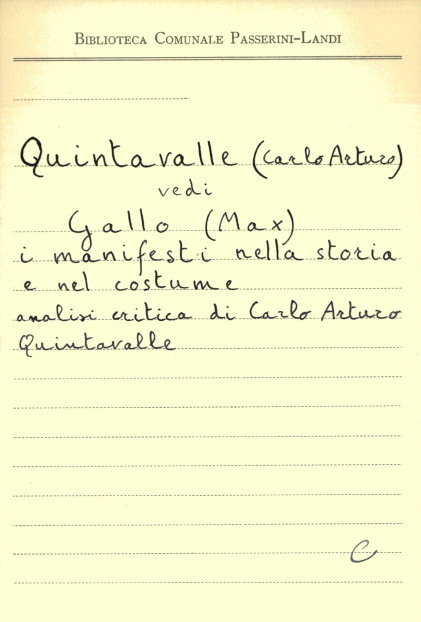 Biblioteca Comunale Passerini-Landi
Quintavalle (Carlo Arturo)
vedi
Gallo (Max)
i manifesti nella storia
e nel costume
analisi critica di Carlo Arturo
Quintavalle
C